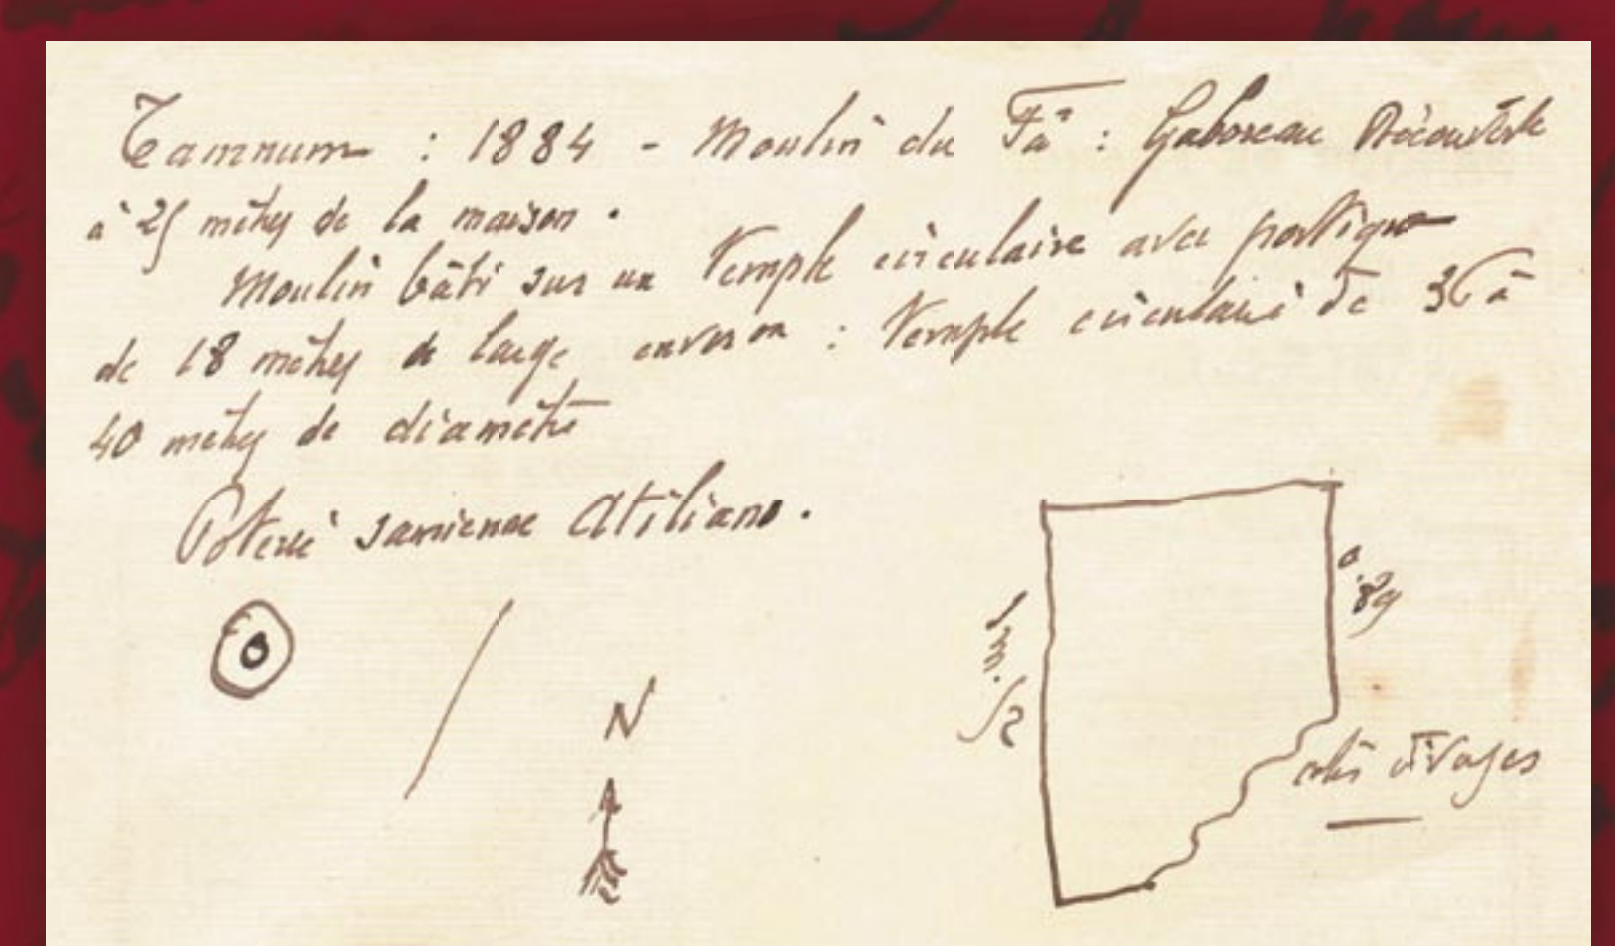 Tamnum : 1884 - Moulin du Fâ : Gaboreau Découverte
à 25 mètres de la maison.
Moulin bâti sur un Temple circulaire avec portique
de 18 mètres de large environ : Temple circulaire de 36 à
40 mètres de diamètre
Poterie samienne Atiliano.
0.89
1m.52
N